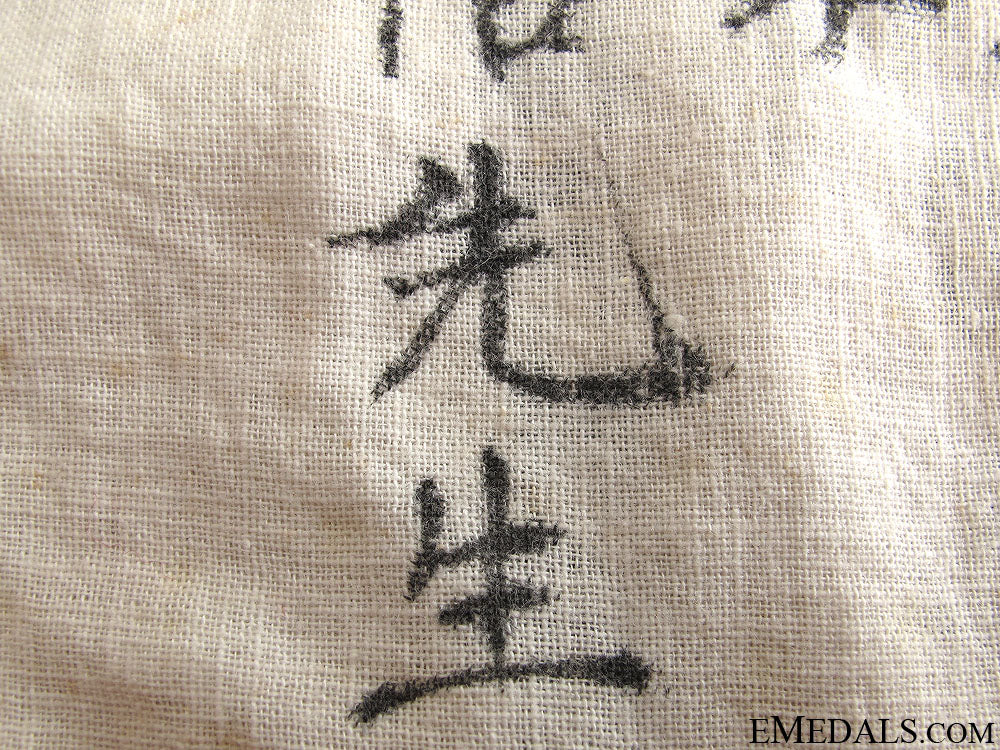 先生
EMEDALS.COM